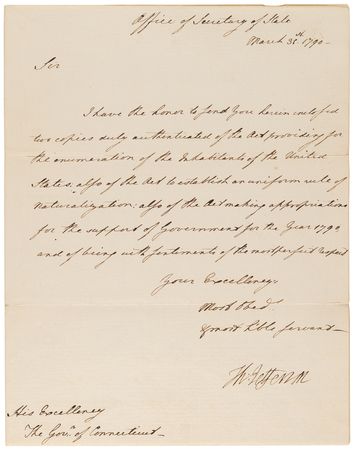 Office of Secretary of State
March 31st 1790 —
Sir
I have the honor to send you herein inclosed
two copies duly authenticated of the Act providing for
the enumeration of the Inhabitants of the United
States; also of the Act to establish an uniform rule of
naturalization; also of the Act making appropriations
for the support of Government for the Year 1790
and of being with sentiments of the most perfect respect
Your Excellency's
Most Obed.
& most hble servant —
Th: Jefferson
His Excellency
The Gov.r of Connecticut —